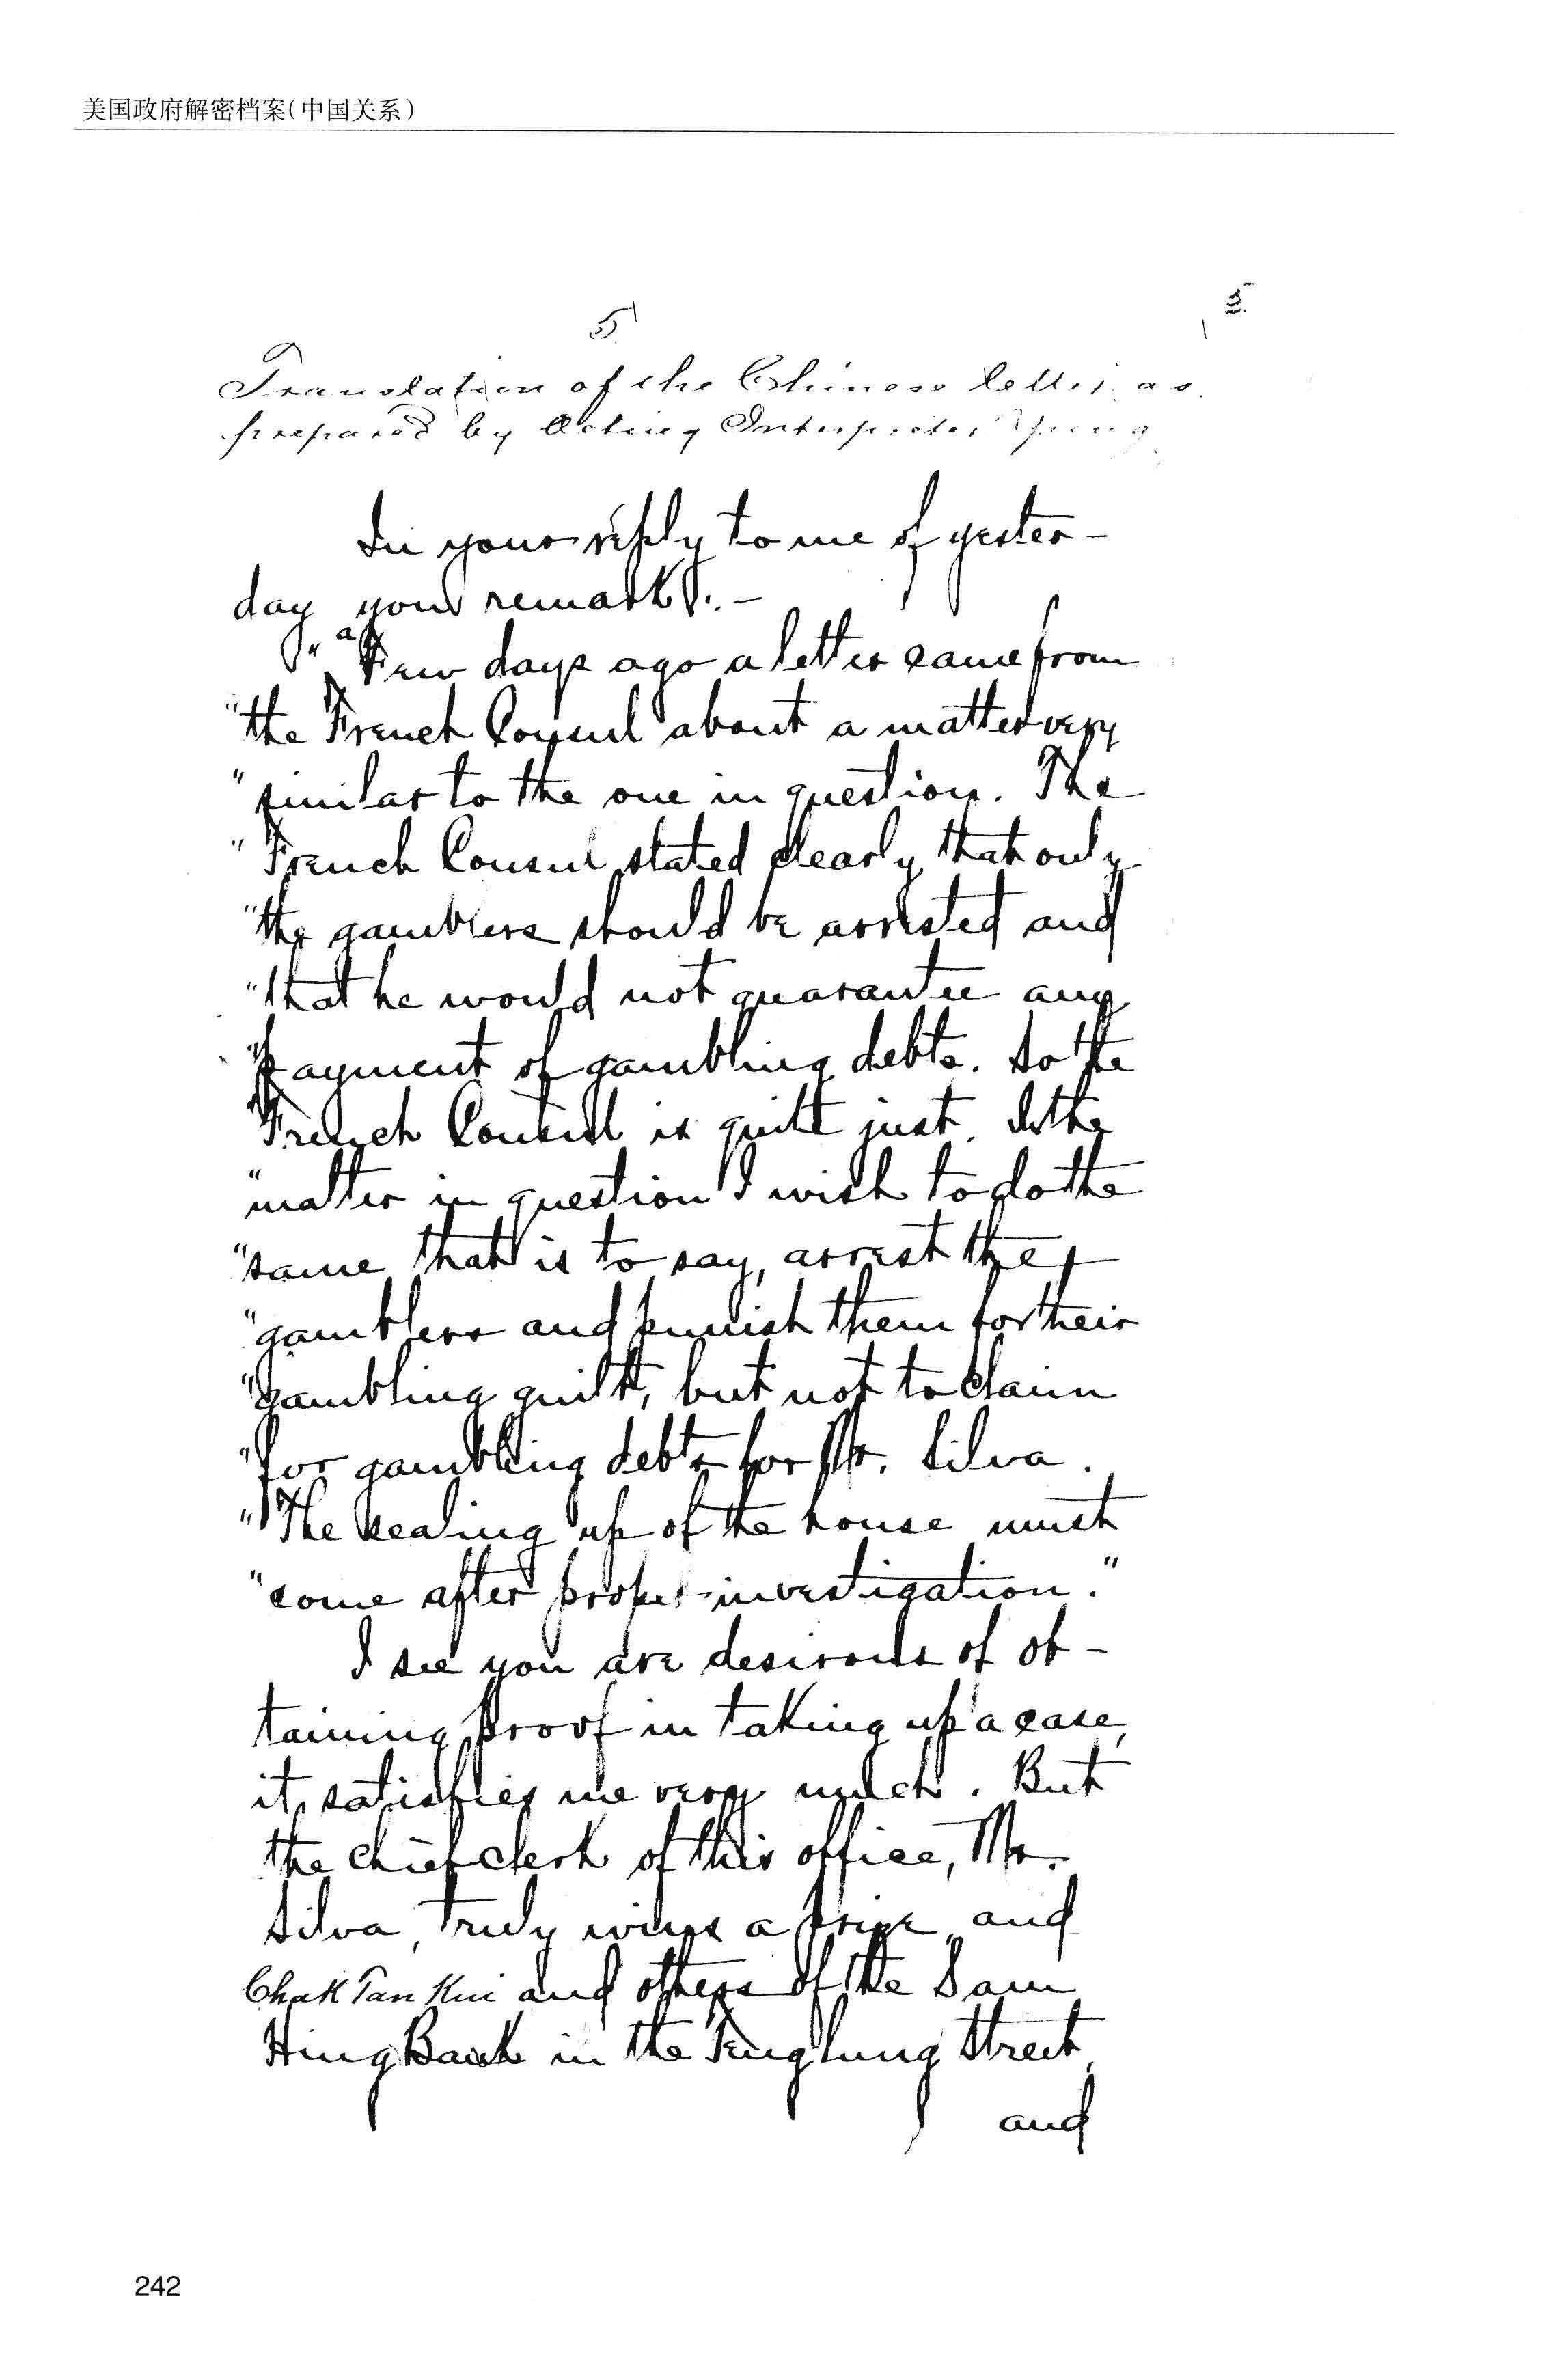 美国政府解密档案(中国关系)
5
5
Translation of the Chinese letter as
prepared by Acting Interpreter Yung
In your reply to me of yester-
day you remark:-
" a few days ago a letter came from
"the French Consul about a matter very
"similar to the one in question. The
"French Consul stated clearly that only
"the gamblers should be arrested and
"that he would not guarantee any
"payment of gambling debts. So the
"French Consul is quite just. In the
"matter in question I wish to do the
"same that is to say, arrest the
"gamblers and punish them for their
"gambling guilt, but not to claim
"for gambling debts for Mr. Silva.
"The sealing up of the house must
"come after proper investigation."
I see you are desirous of ob-
taining proof in taking up a case,
it satisfies me very much. But
the chief clerk of this office, Mr.
Silva, truly wins a prize and
Chak Tan Kui and others of the Sam
Hing Bank in the Tung lung Street,
and
242